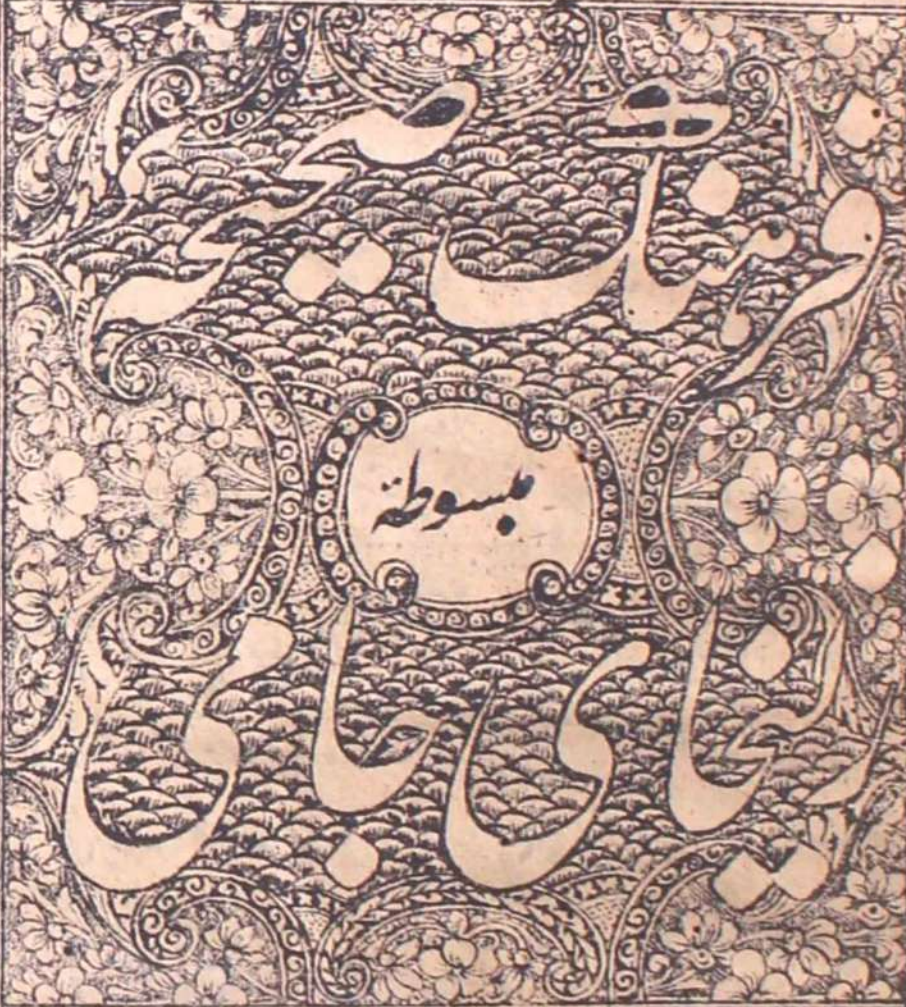 فرہنگ صحیحہ
مبسوطۃ
زلیخای جامی